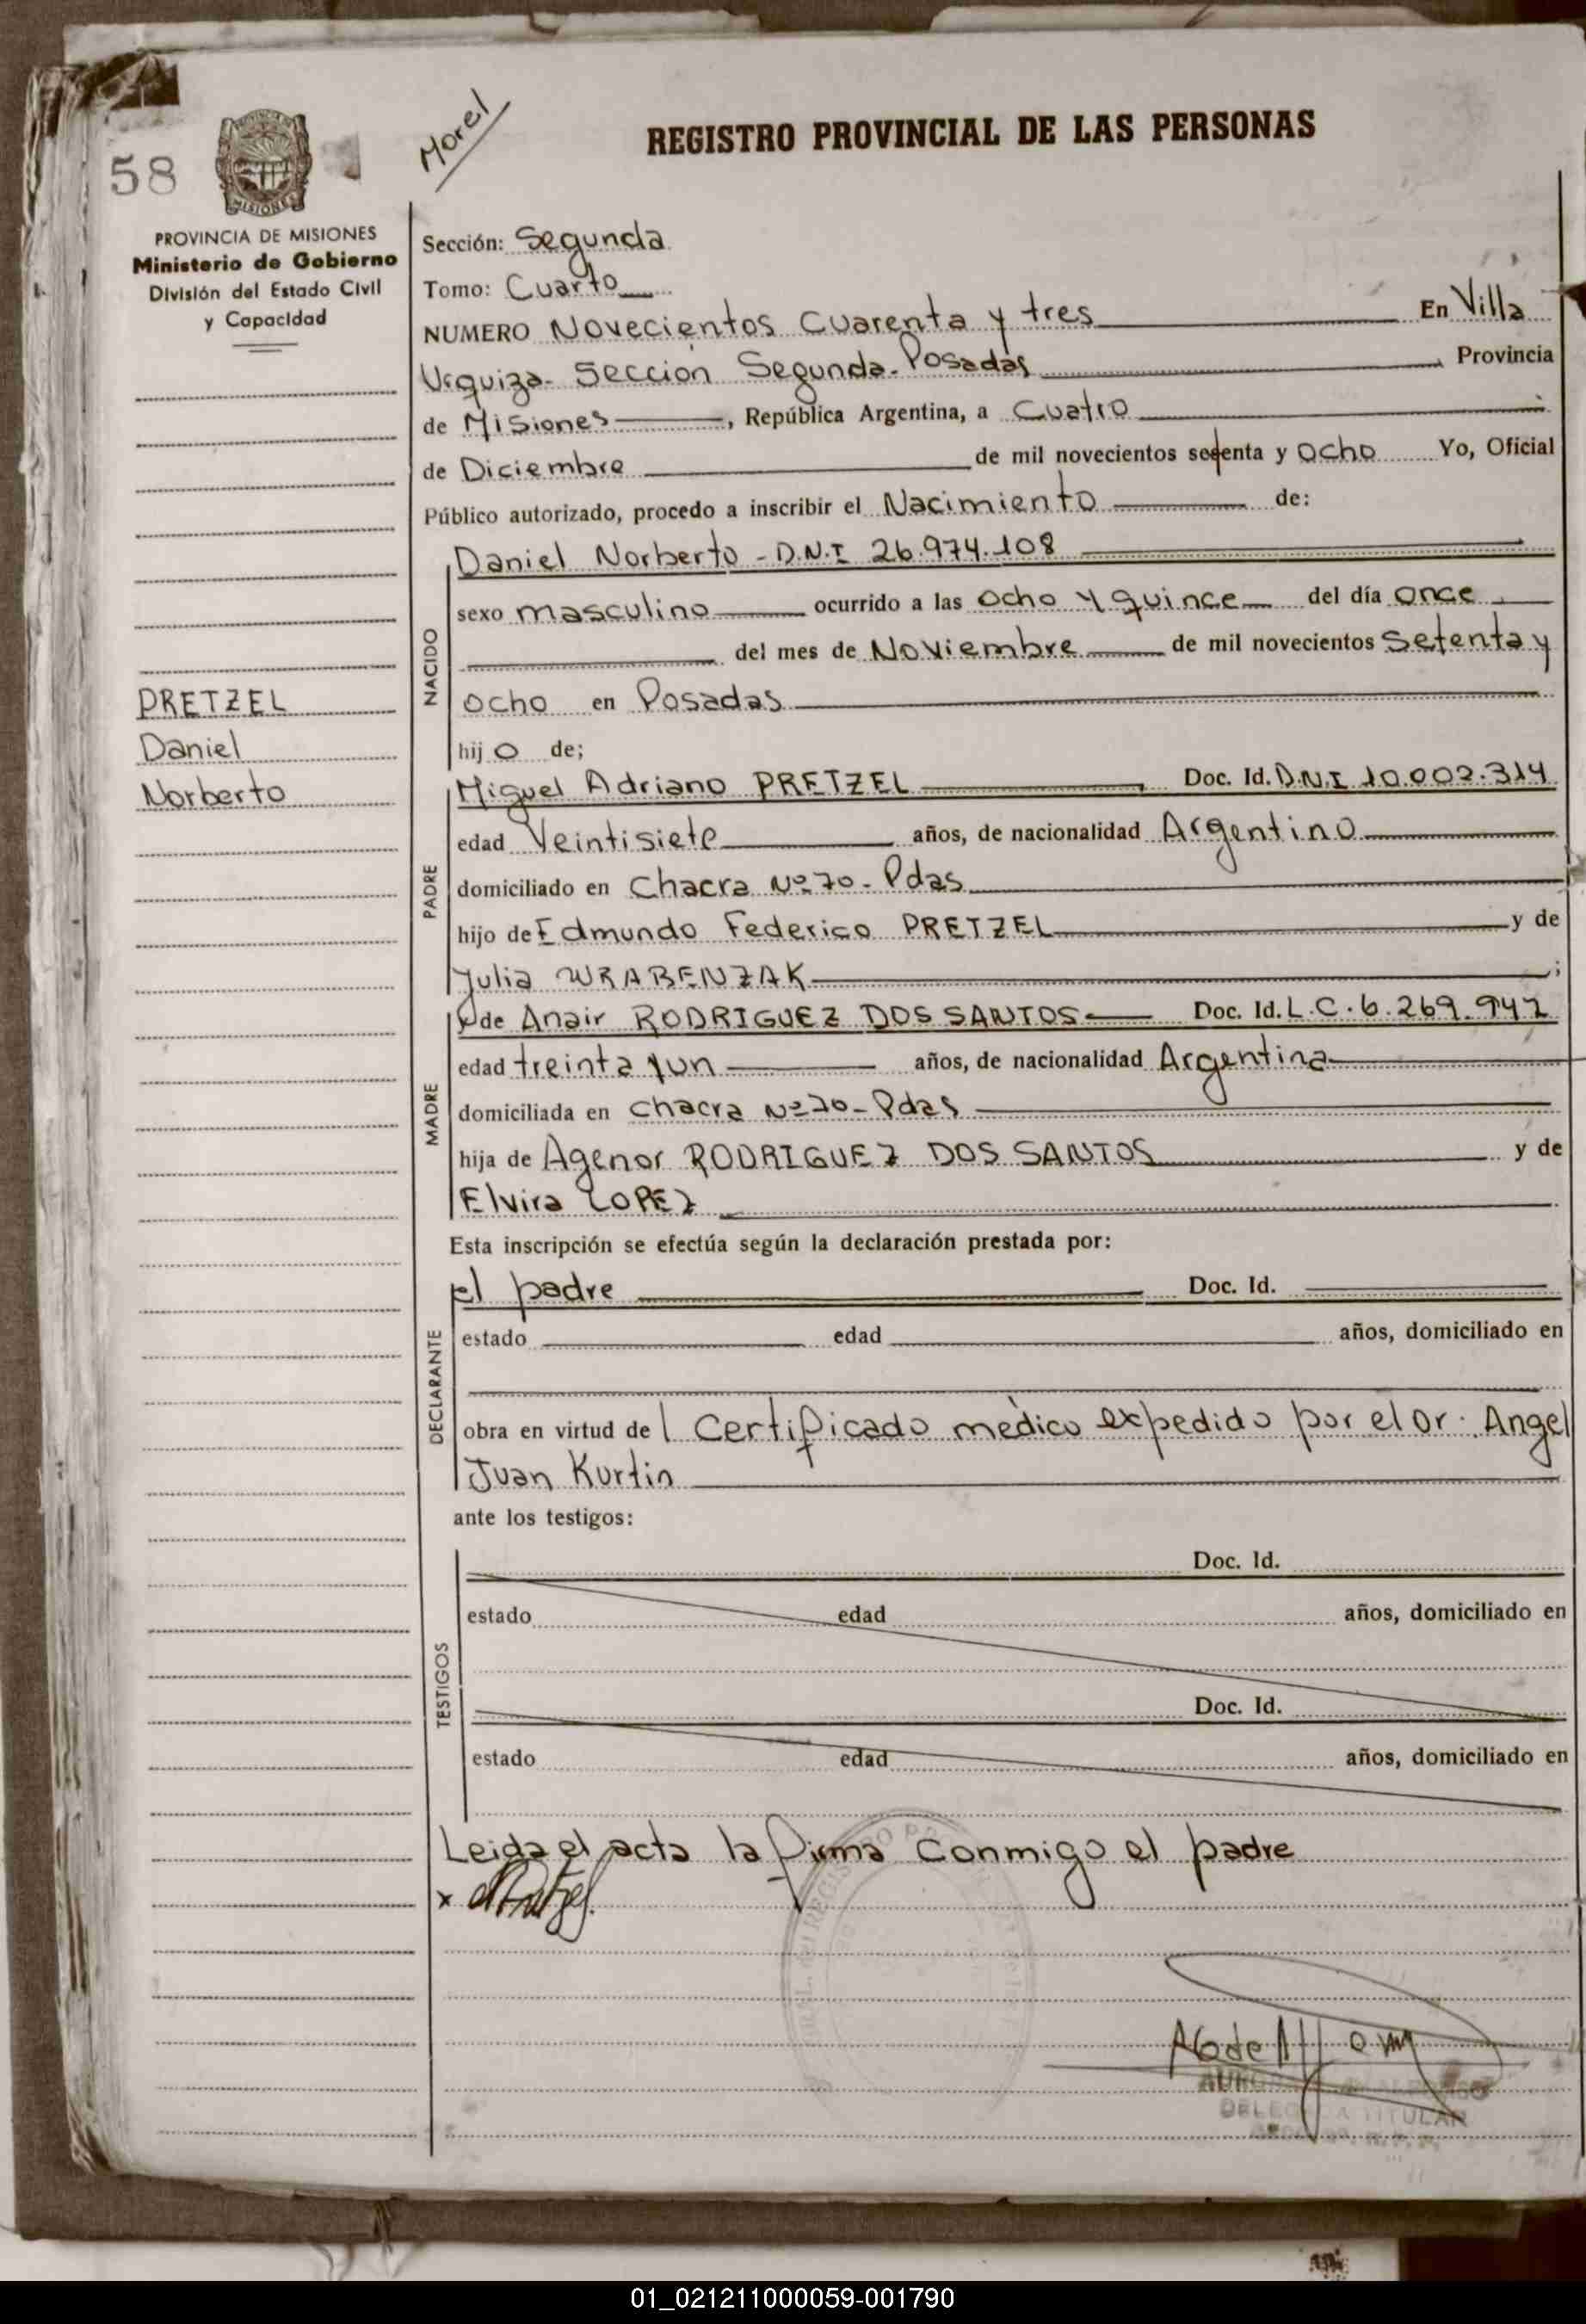 58
Morel
REGISTRO PROVINCIAL DE LAS PERSONAS
MISIONES
PROVINCIA DE MISIONES
Ministerio de Gobierno
División del Estado Civil
y Capacidad
PRETZEL
Daniel
Norberto
Sección: Segunda
Tomo: Cuarto
NUMERO Novecientos Cuarenta y tres En Villa
Urquiza - Sección Segunda - Posadas Provincia
de Misiones, República Argentina, a Cuatro
de Diciembre de mil novecientos setenta y Ocho Yo, Oficial
Público autorizado, procedo a inscribir el Nacimiento de:
NACIDO
Daniel Norberto - D.N.I 26.974.108
sexo masculino ocurrido a las Ocho y quince del día Once
del mes de Noviembre de mil novecientos Setenta y
Ocho en Posadas
hijo de;
PADRE
Miguel Adriano PRETZEL Doc. Id. D.N.I 10.002.314
edad Veintisiete años, de nacionalidad Argentino
domiciliado en Chacra Nº 70 - Pdas
hijo de Edmundo Federico PRETZEL y de
Julia WRABENZAK;
MADRE
y de Anair RODRIGUEZ DOS SANTOS Doc. Id. L.C. 6.269.942
edad treinta y un años, de nacionalidad Argentina
domiciliada en Chacra Nº 70 - Pdas
hija de Agenor RODRIGUEZ DOS SANTOS y de
Elvira LOPEZ
Esta inscripción se efectúa según la declaración prestada por:
DECLARANTE
el padre Doc. Id.
estado edad años, domiciliado en
obra en virtud del Certificado mèdico expedido por el Dr. Angel
Juan Kurtin
ante los testigos:
TESTIGOS
Doc. Id.
estado edad años, domiciliado en
Doc. Id.
estado edad años, domiciliado en
Leida el acta la firma Conmigo el padre
x
DELEGADA TITULAR
01_021211000059-001790